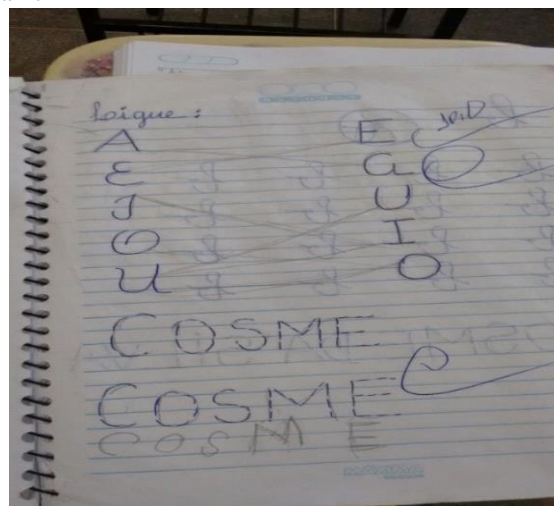 Ligue:
A E
E a
I U
O I
U O
COSME
COSME
COSME